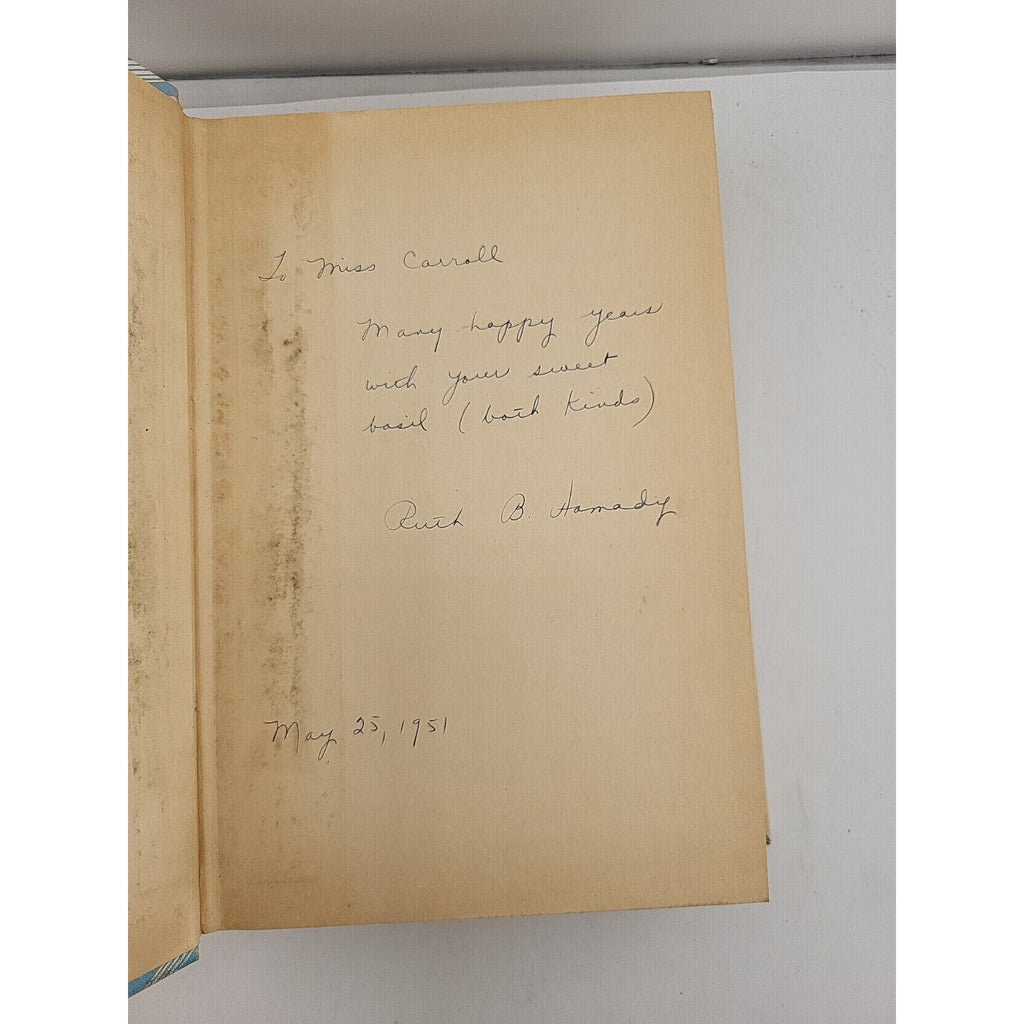 To Miss Carroll
Many happy years
with your sweet
basil (both kinds)
Ruth B. Hamady
May 25, 1951